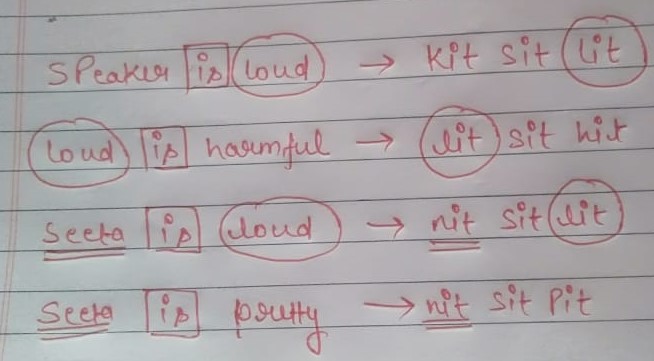 Speaker is loud → kit sit lit
loud is harmful → lit sit hit
Seeta is loud → nit sit lit
Seeta is pretty → nit sit pit